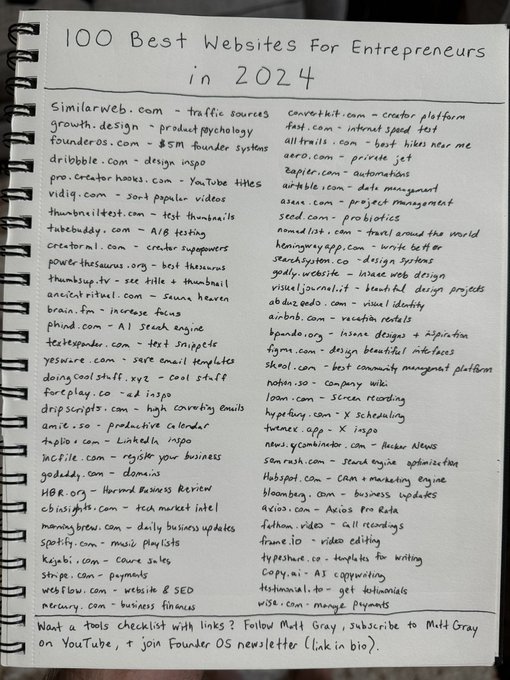 100 Best Websites For Entrepreneurs
in 2024
Similarweb.com - traffic sources
growth.design - product psychology
founderos.com - $5M founder systems
dribbble.com - design inspo
pro.creatorhooks.com - YouTube titles
vidiq.com - sort popular videos
thumbnailtest.com - test thumbnails
tubebuddy.com - A/B testing
creatorml.com - creator superpowers
powerthesaurus.org - best thesaurus
thumbsup.tv - see title + thumbnail
ancientrituel.com - sauna heaven
brain.fm - increase focus
phind.com - AI search engine
textexpander.com - text snippets
yesware.com - save email templates
doingcoolstuff.xyz - cool stuff
foreplay.co - ad inspo
dripscripts.com - high converting emails
amie.so - productive calendar
taplio.com - LinkedIn inspo
incfile.com - register your business
godaddy.com - domains
HBR.org - Harvard Business Review
cbinsights.com - tech market intel
morningbrew.com - daily business updates
spotify.com - music playlists
Kajabi.com - Course sales
stripe.com - payments
webflow.com - website & SEO
mercury.com - business finances
convertkit.com - creator platform
fast.com - internet speed test
alltrails.com - best hikes near me
aero.com - private jet
zapier.com - automations
airtable.com - data management
asana.com - project management
seed.com - probiotics
nomadlist.com - travel around the world
hemingwayapp.com - write better
searchsystem.co - design systems
godly.website - insane web design
visualjournal.it - beautiful design projects
abduzeedo.com - visual identity
airbnb.com - vacation rentals
bpando.org - insane designs + inspiration
figma.com - design beautiful interfaces
skool.com - best community management platform
notion.so - company wiki
loom.com - screen recording
hypefury.com - X scheduling
twemex.app - X inspo
news.ycombinator.com - Hacker News
semrush.com - search engine optimization
Hubspot.com - CRM + marketing engine
bloomberg.com - business updates
axios.com - Axios Pro Rata
fathom.video - call recordings
frame.io - video editing
typeshare.co - templates for writing
Copy.ai - AI copywriting
testimonial.to - get testimonials
wise.com - manage payments
Want a tools checklist with links? Follow Matt Gray, subscribe to Matt Gray
on YouTube, + join Founder OS newsletter (link in bio).